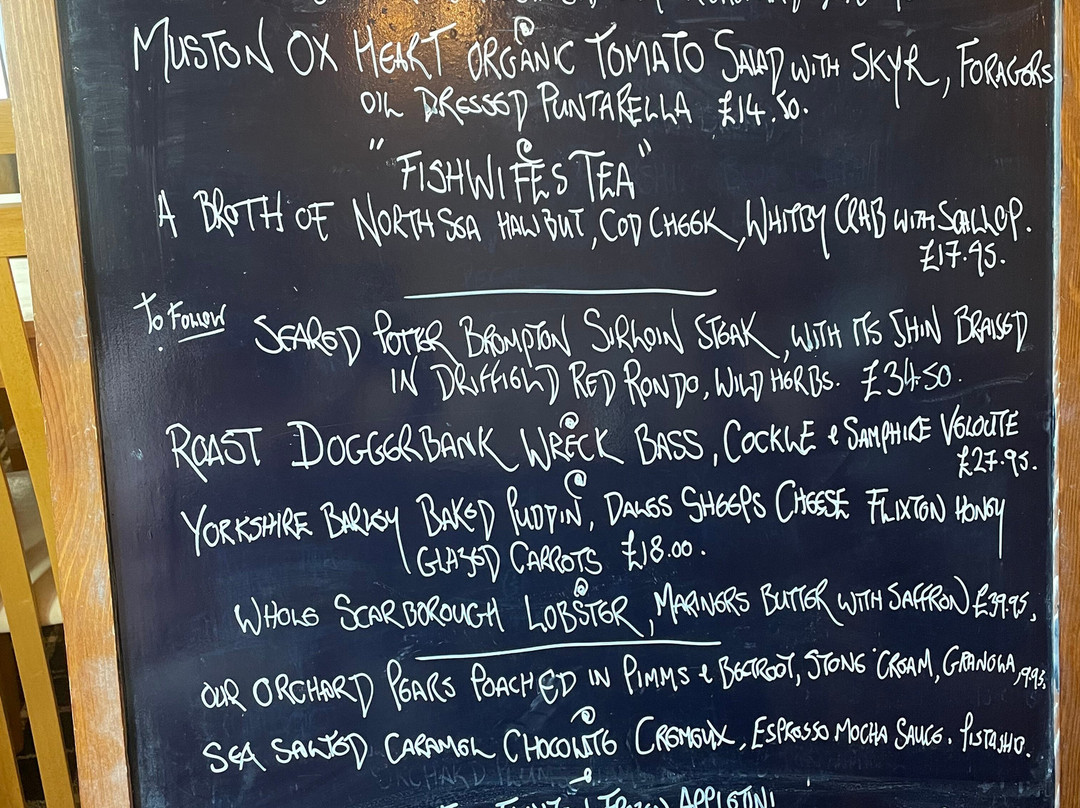 MUSTON OX HEART ORGANIC TOMATO SALAD WITH SKYR, FORAGERS
OIL DRESSED PUNTARELLA £14.50.
"FISHWIFES TEA"
A BROTH OF NORTH SEA HALIBUT, COD CHEEK, WHITBY CRAB WITH SCALLOP.
£17.95.
To Follow
SEARED POTTER BROMPTON SIRLOIN STEAK, WITH ITS SHIN BRAISED
IN DRIFFIELD RED RONDO, WILD HERBS. £34.50.
ROAST DOGGERBANK WRECK BASS, COCKLE & SAMPHIRE VELOUTE
£27.95.
YORKSHIRE BARLEY BAKED PUDDIN, DALES SHEEPS CHEESE FLIXTON HONEY
GLAZED CARROTS £18.00.
WHOLE SCARBOROUGH LOBSTER, MARINERS BUTTER WITH SAFFRON £39.95,
OUR ORCHARD PEARS POACHED IN PIMMS & BEETROOT, STONE CREAM, GRANOLA, 9.95.
SEA SALTED CARAMEL CHOCOLATE CREMEUX, ESPRESSO MOCHA SAUCE. PISTASHO.
FROZEN APPLETINI